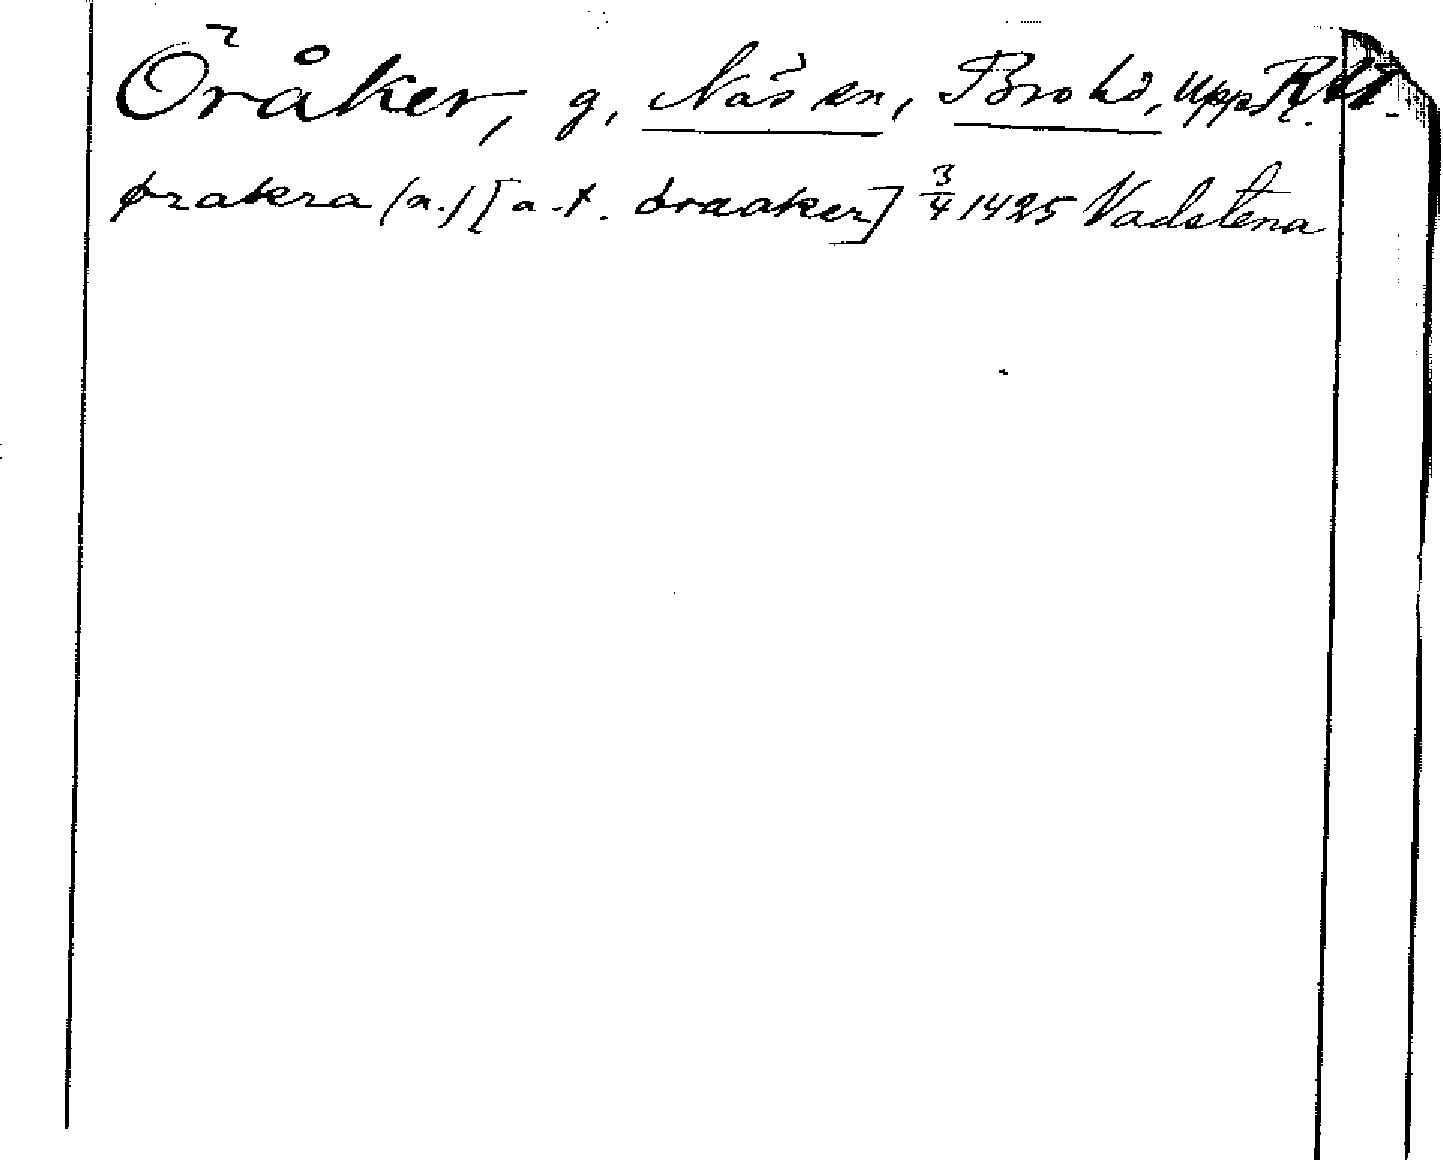 Öråker, g, Näs sn, Bro hd, Upps. R.
ørakra (a.) [a.t. öraaker] 3/4 1425 Vadstena